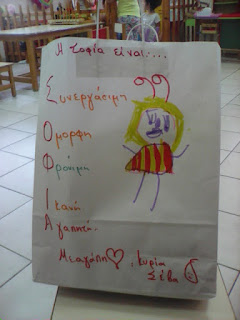 Η Σοφία είναι....
Συνεργάσιμη
Όμορφη
Φρόνιμη
Ικανή
Αγαπητή.
Με αγάπη κυρία
Εύη